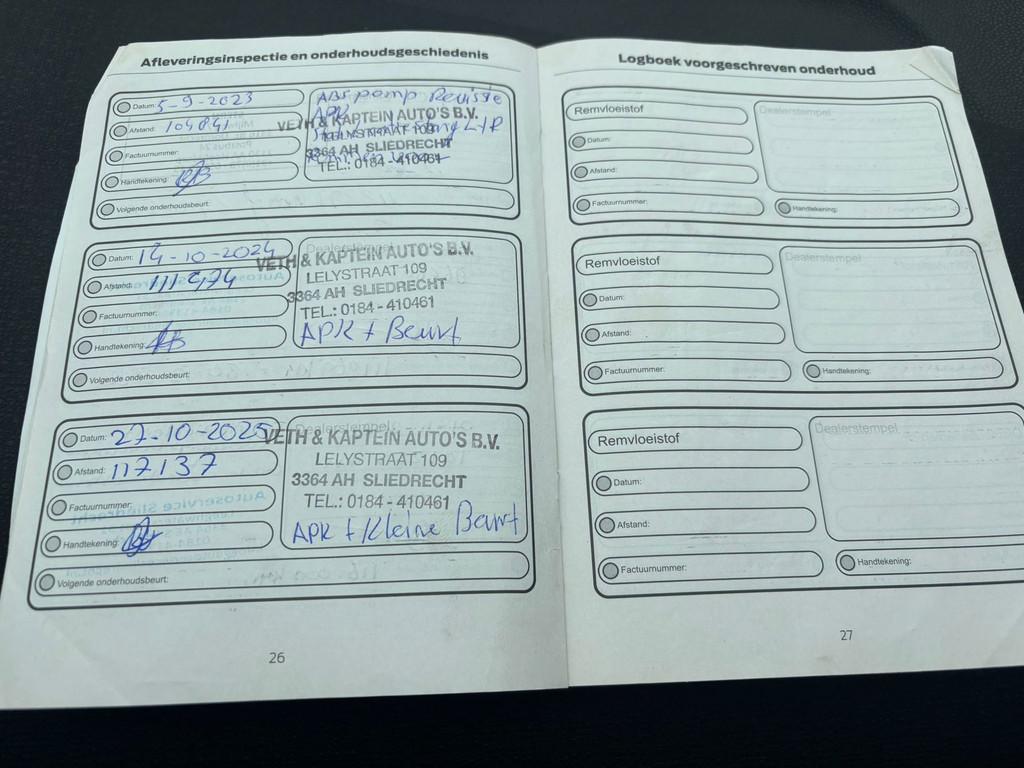 Afleveringsinspectie en onderhoudsgeschiedenis
Datum: 5-9-2023
Afstand: 104841
Factuurnummer:
Handtekening:
Volgende onderhoudsbeurt:
ABS pomp Revisie
APK
VETH & KAPTEIN AUTO'S B.V.
LELYSTRAAT 109
3364 AH SLIEDRECHT
TEL.: 0184-410461
Datum: 14-10-2024
Afstand: 111474
Factuurnummer:
Handtekening:
Volgende onderhoudsbeurt:
Dealerstempel
VETH & KAPTEIN AUTO'S B.V.
LELYSTRAAT 109
3364 AH SLIEDRECHT
TEL.: 0184-410461
APK + Beurt
Datum: 27-10-2025
Afstand: 117137
Factuurnummer:
Handtekening:
Volgende onderhoudsbeurt:
Dealerstempel
VETH & KAPTEIN AUTO'S B.V.
LELYSTRAAT 109
3364 AH SLIEDRECHT
TEL.: 0184-410461
APK + Kleine Beurt
26
Logboek voorgeschreven onderhoud
Remvloeistof
Datum:
Afstand:
Factuurnummer:
Dealerstempel
Handtekening:
Remvloeistof
Datum:
Afstand:
Factuurnummer:
Dealerstempel
Handtekening:
Remvloeistof
Datum:
Afstand:
Factuurnummer:
Dealerstempel
Handtekening:
27